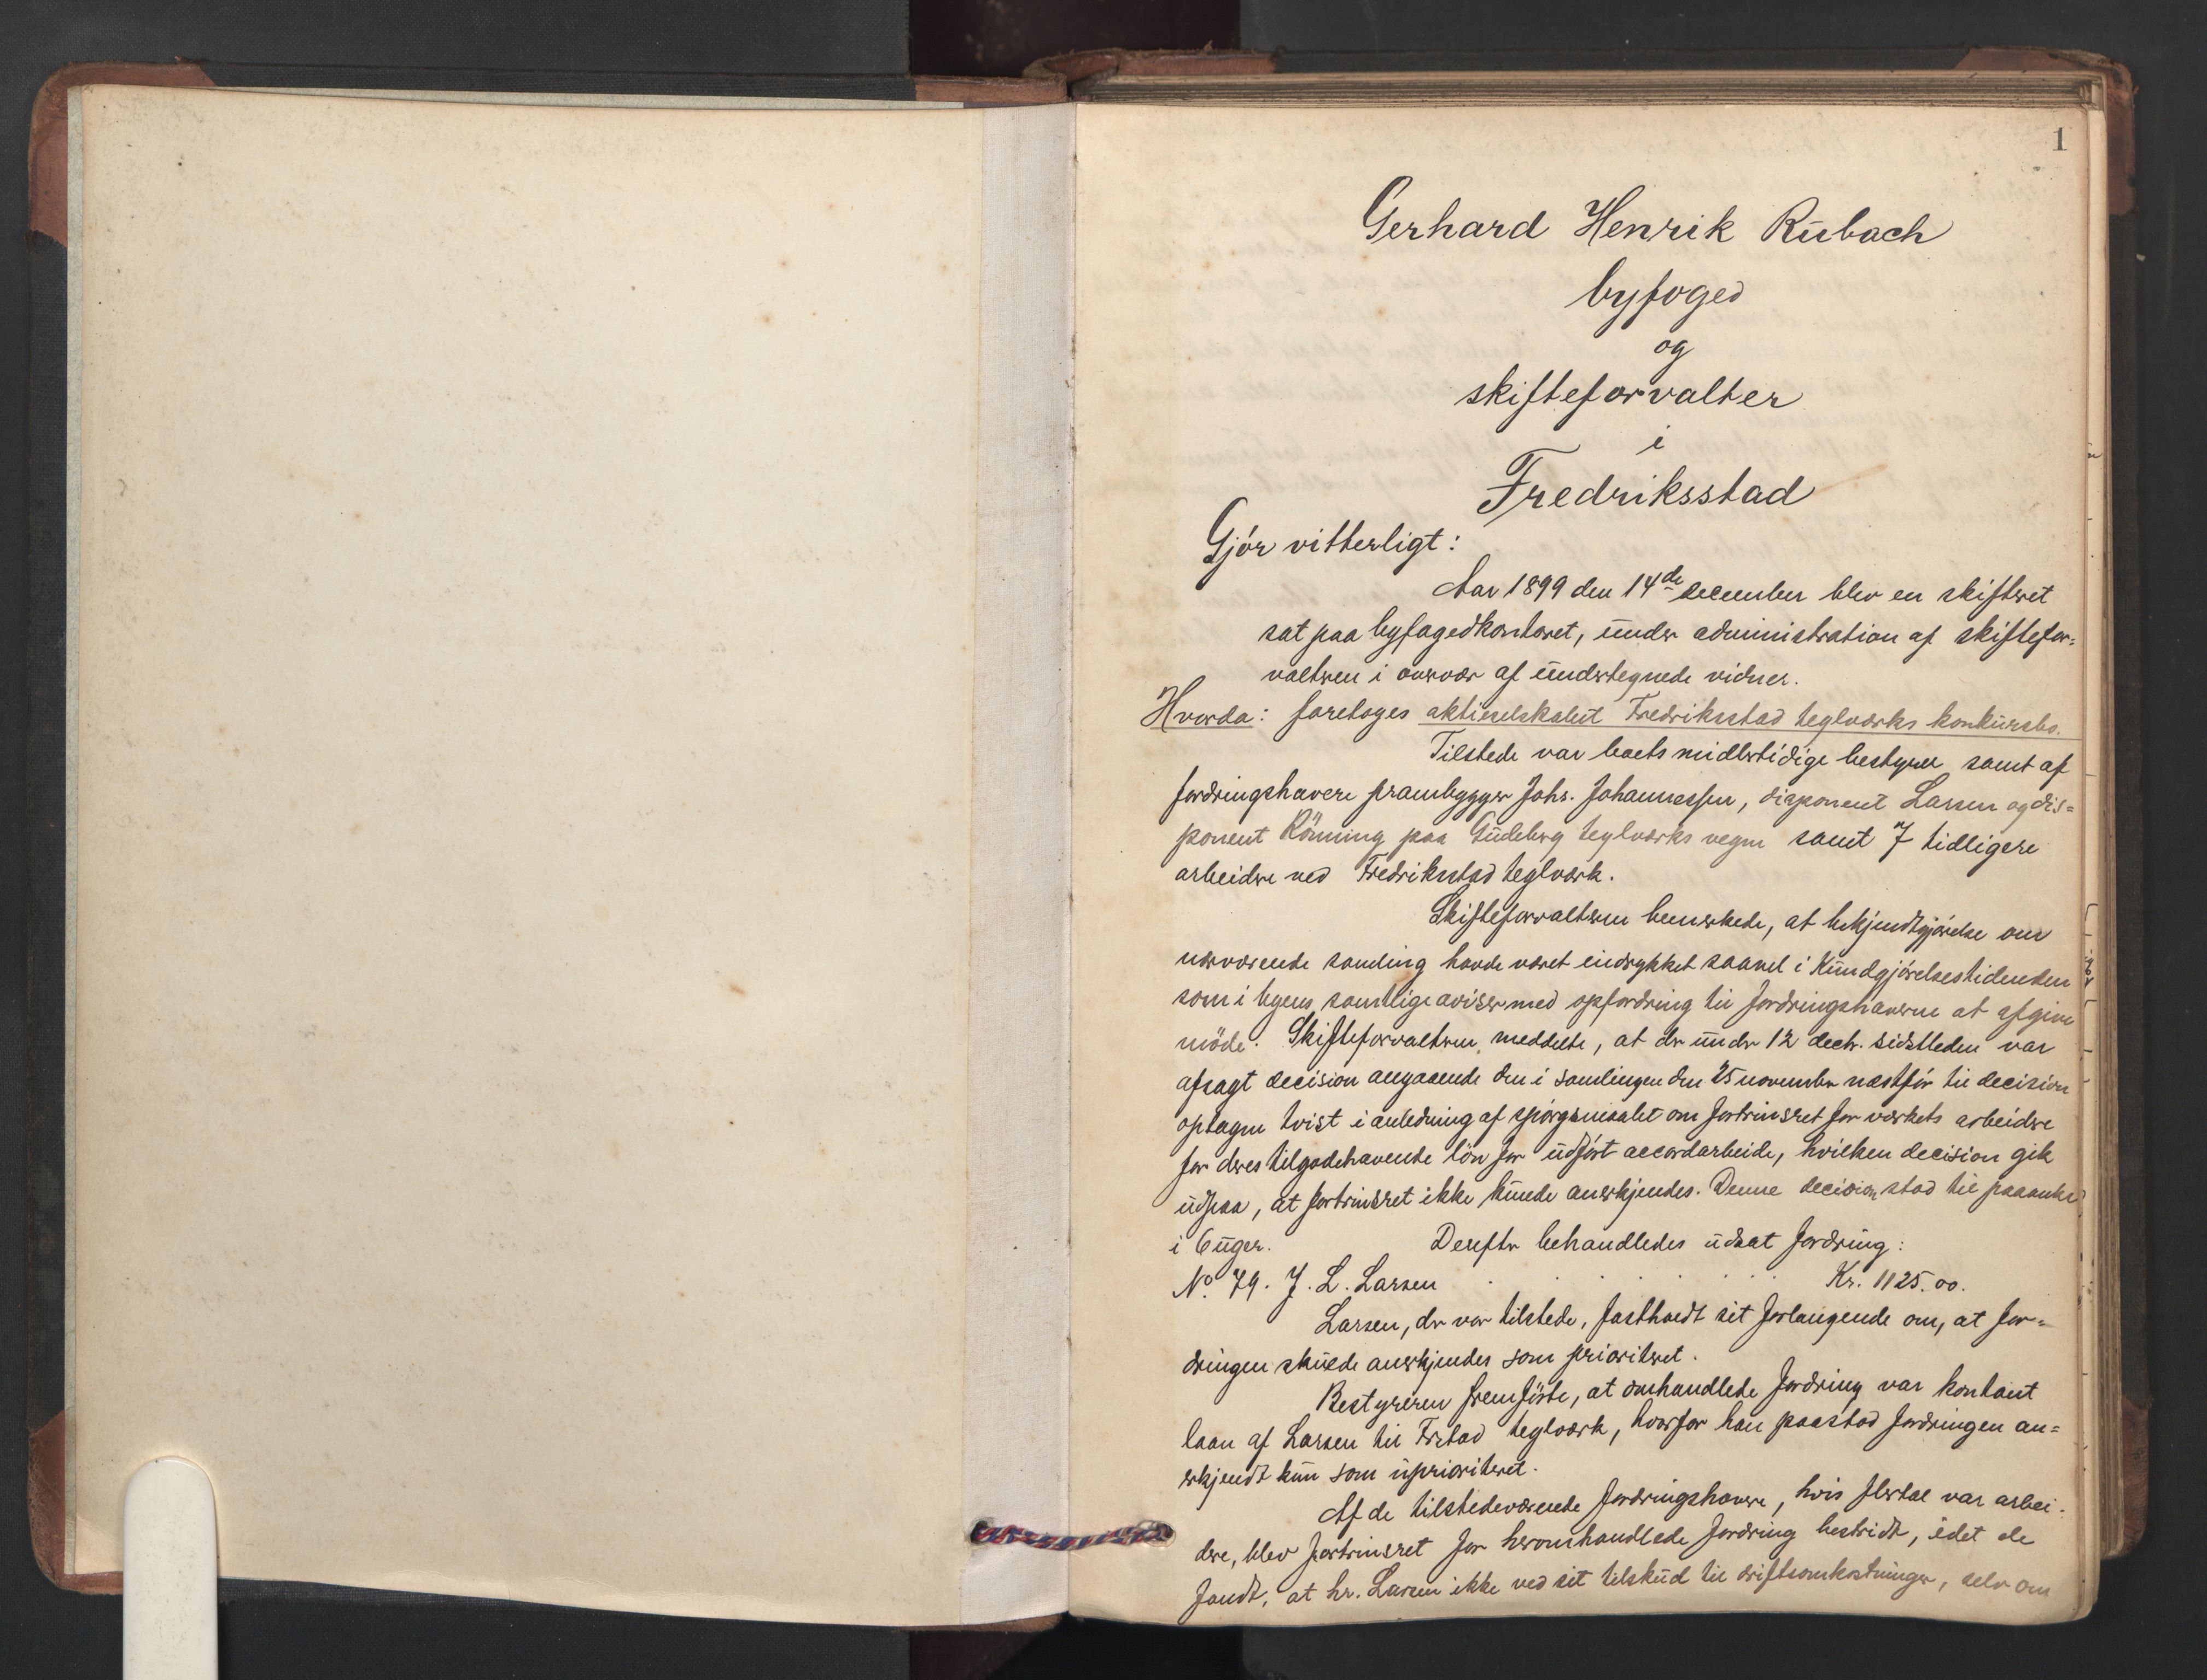 1
Gerhard Henrik Rubach
byfoged
og
skifteforvalter
i
Fredriksstad
Gjör vitterligt:
Aar 1899 den 14de december blev en skifteret
sat paa byfogedkontoret, under administration af skiftefor=
valteren i overvær af undertegnede vidner.
Hvorda: foretoges aktieselskabet Fredriksstad teglværks konkursbo.
Tilstede var boets midlertidige bestyrer samt af
fordringshavere prambygger Johs. Johannessen, disponent Larsen og dis=
ponent Rönning paa Gudeberg teglværks vegne samt 7 tidligere
arbeidere ved Fredriksstad teglværk.
Skifteforvalteren bemerkede, at bekjendtgjörelse om
nærværende samling havde været indrykket saavel i Kundgjörelsestidenden
som i byens samtlige aviser med opfordring til fordringshaverne at afgive
möde. Skifteforvalteren meddelte, at der under 12 decbr. sidstleden var
afsagt decision angaaende den i samlingen den 25 november næstför til decision
optagne tvist i anledning af spörgsmaalet om fortrinsret for værkets arbeidere
for deres tilgodehavende lön for udfört accordarbeide, hvilken decision gik
udpaa, at fortrinsret ikke kunde anerkjendes. Denne decision stod til paaanke
i 6 uger. Derefter behandledes udsat fordring:
No. 79. J. L. Larsen . . . . . . . Kr. 1125.00.
Larsen, der var tilstede, fastholdt sit forlangende om, at for=
dringen skulde anerkjendes som prioriteret.
Bestyreren fremförte, at omhandlede fordring var kontant
laan af Larsen til Frstad teglværk, hvorfor han paastod fordringen an=
erkjendt kun som uprioriteret.
Af de tilstedeværende fordringshavere, hvis flertal var arbei=
dere, blev fortrinsret for heromhandlede fordring bestridt, idet de
fandt, at hr. Larsen ikke ved sit tilskud til driftsomkostninger, selv om